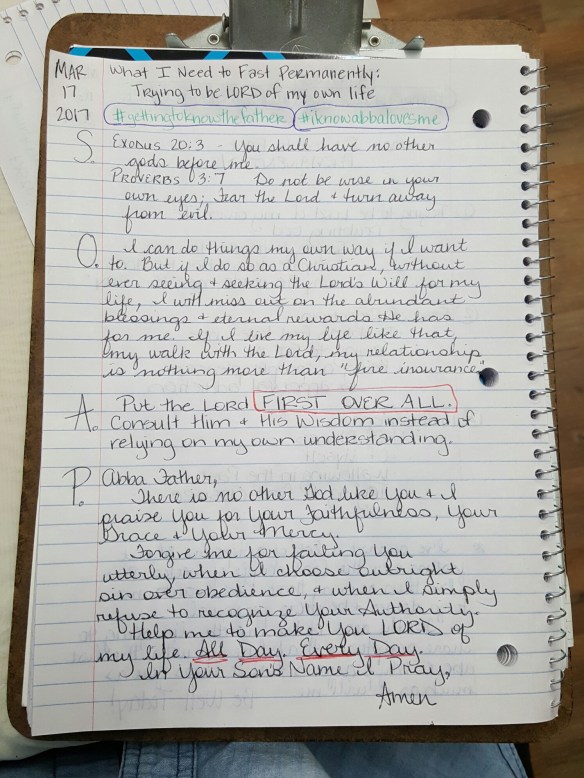 MAR
17
2017
What I Need to Fast Permanently:
Trying to be LORD of my own life
#gettingtoknowthefather #iknowabbalovesme
S. EXODUS 20:3 - You shall have no other
gods before me.
PROVERBS 3:7 Do not be wise in your
own eyes; Fear the Lord & turn away
from evil.
O. I can do things my own way if I want
to. But if I do so as a Christian, without
ever seeing & seeking the Lord's Will for my
life, I will miss out on the abundant
blessings & eternal rewards He has
for me. If I live my life like that,
my walk with the Lord, my relationship
is nothing more than "fire insurance"
A. Put the LORD FIRST OVER ALL.
Consult Him & His Wisdom instead of
relying on my own understanding.
P. Abba Father,
There is no other God like You & I
praise You for Your Faithfulness, Your
Grace & Your Mercy.
Forgive me for failing You
utterly when I choose outright
sin over obedience, & when I simply
refuse to recognize Your Authority.
Help me to make You LORD of
my life. All Day. Every Day.
In Your Son's Name I Pray,
Amen